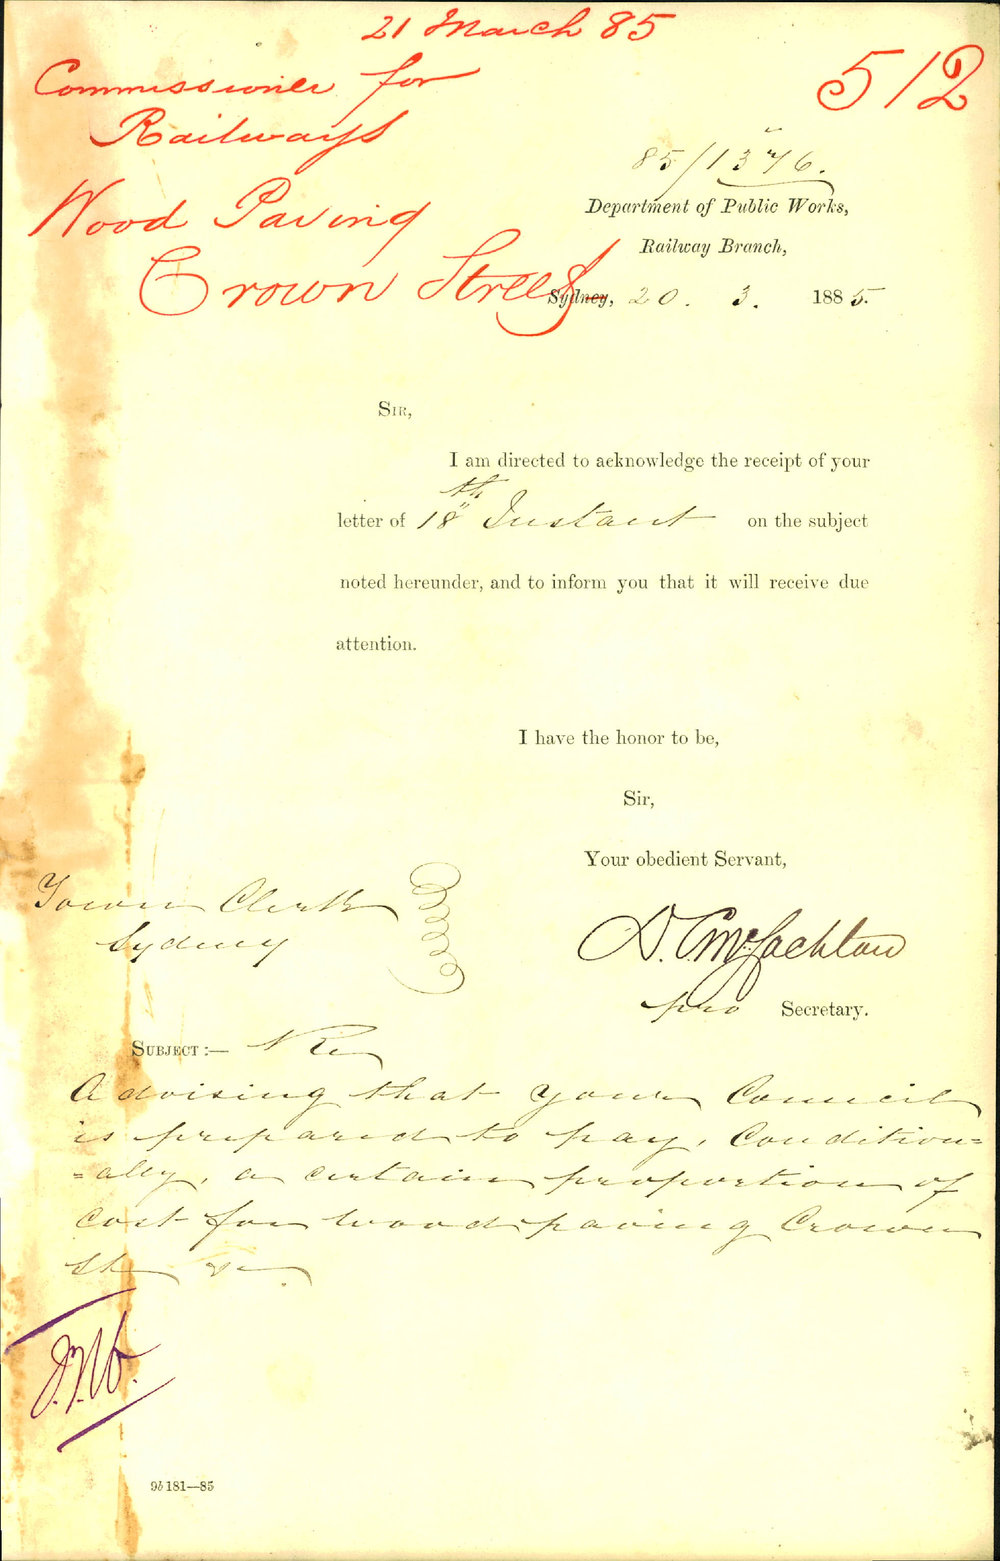 21 March 85
512
Commissioner for
Railways
Wood Paving
Crown Street
85/1376.
Department of Public Works,
Railway Branch,
Sydney, 20. 3. 1885.
SIR,
I am directed to acknowledge the receipt of your
letter of 18th Instant on the subject
noted hereunder, and to inform you that it will receive due
attention.
I have the honor to be,
Sir,
Your obedient Servant,
D. C. McLachlan
pro Secretary.
Town Clerk
Sydney
SUBJECT :— Re
Advising that your Council
is prepared to pay, Condition=
=ally, a certain proportion of
cost for woodpaving Crown
St
9b 181—85